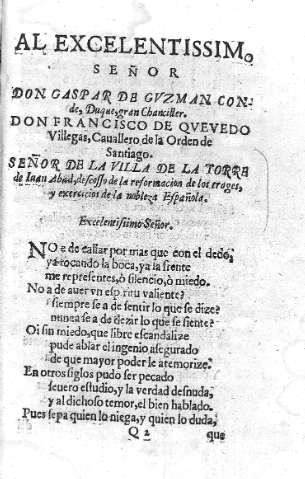 AL EXCELENTISSIMO
SEÑOR
DON GASPAR DE GVZMAN CON-
de, Duque, gran Chanciller.
DON FRANCISCO DE QVEVEDO
Villegas, Cauallero de la Orden de
Santiago.
SEÑOR DE LA VILLA DE LA TORRE
de Iuan Abad, desseoso de la reformacion de los trages,
y exercicios de la nobleza Española.
Excelentissimo Señor.
NO e de callar por mas que con el dedo,
ya tocando la boca, ya la frente
me representes, ò silencio, ò miedo.
No a de auer vn espiritu valiente?
siempre se a de sentir lo que se dize?
nunca se a de dezir lo que se siente?
Oi sin miedo, que libre escandalize
pude ablar el ingenio asegurado
de que mayor poder le atemorize.
En otros siglos pudo ser pecado
seuero estudio, y la verdad desnuda,
y al dichoso temor, el bien hablado.
Pues sepa quien lo niega, y quien lo duda,
Q 2 que